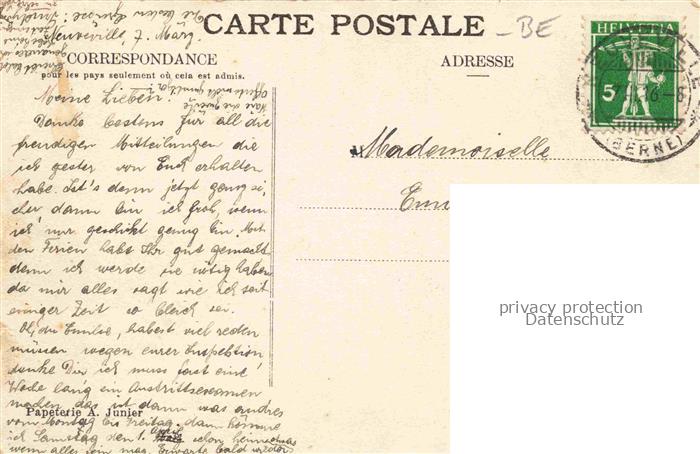 CARTE POSTALE
BE
CORRESPONDANCE
pour les pays seulement où cela est admis.
ADRESSE
HELVETIA
5
(BERNE)
Neuveville, 7. März.
Meine Lieben!
Danke bestens für all die
freudigen Mitteilungen die
ich gester von Euch erhalten
habe. Ist's denn jetzt ganz si,
cher dann bin ich froh, wenn
ich nur geschickt genug bin. Mit
den Ferien habt Ihr gut gemacht
denn ich werde sie nötig haben
da mir alles sagt wie ich seit
einiger Zeit so bleich sei.
Oh, du Emilie, habest viel reden
müssen wegen eurer Inspektion
danke Dir ich muss fast eine
Woche lang ein Austrittsexamen
machen das ist dann was andres
vom Montag bis Freitag. dann komme
ich Samstag den 1. schon heim
wenn alles sein mag. Erwarte bald wieder
Papeterie A. Junier
Mademoiselle
privacy protection
Datenschutz